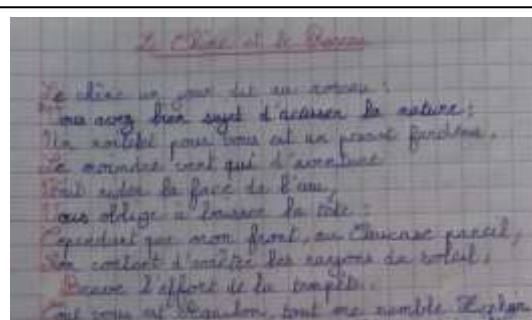 Le Chêne et le Roseau
Le chêne un jour dit au roseau :
Vous avez bien sujet d'accuser la nature ;
Un roitelet pour vous est un pesant fardeau,
Le moindre vent qui d'aventure
Fait rider la face de l'eau,
Vous oblige à baisser la tête :
Cependant que mon front, au Caucase pareil,
Non content d'arrêter les rayons du soleil,
Brave l'effort de la tempête.
Tout vous est Aquilon, tout me semble Zéphir